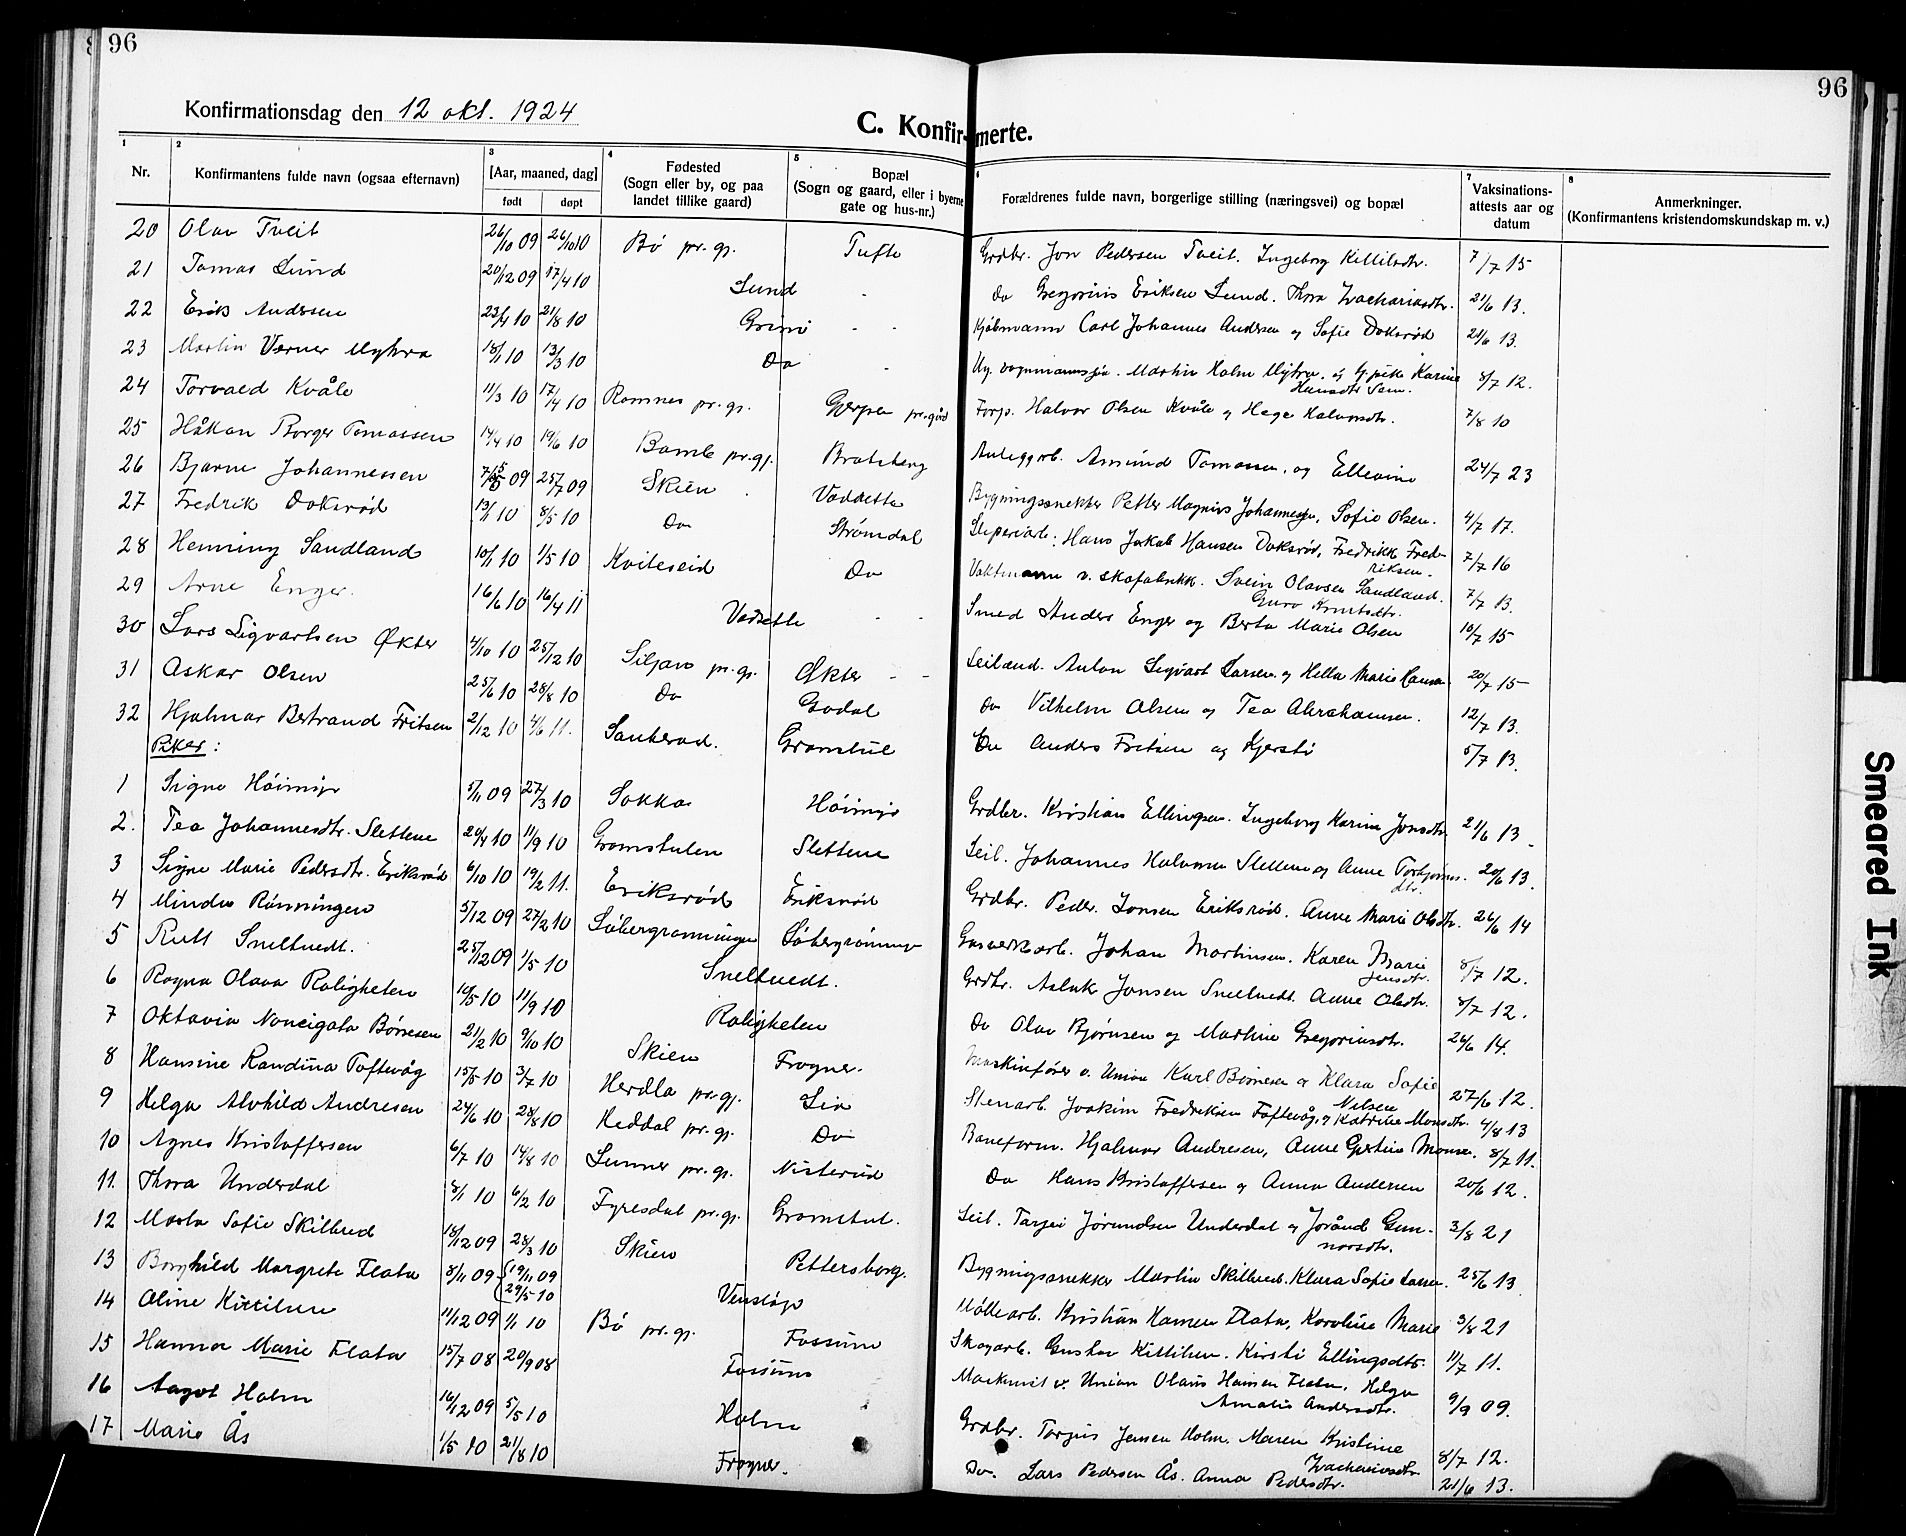 96
96
Konfirmationsdag den 12 okt. 1924
C. Konfirmerte.
1 2 3 4 5 6 7 8
Nr. Konfirmantens fulde navn (ogsaa efternavn) [Aar, maaned, dag] født døpt Fødested (Sogn eller by, og paa landet tillike gaard) Bopæl (Sogn og gaard, eller i byerne gate og hus-nr.) Forældrenes fulde navn, borgerlige stilling (næringsvei) og bopæl Vaksinations-attests aar og datum Anmerkninger. (Konfirmantens kristendomskundskap m. v.)
20 Olav Tveit 26/10 09 26/10 10 Bø pr. gj. Tufte Grdbr. Jon Pedersen Tveit. Ingeborg Kittilsdtr. 7/7 15
21 Tomas Lund 20/12 09 17/4 10 Lund Do Gregorius Eriksen Lund. Thora Zachariasdtr. 21/6 13.
22 Erik Andersen 23/4 10 21/8 10 Grini - - Kjøbmann Carl Johannes Andersen og Sofie Doksrød 21/6 13.
23 Martin Verner Myhra 18/1 10 13/3 10 Do - Ug. vognmannsgj. Martin Holm Myhra. og pike Karine Hansdtr Sem. 8/7 12.
24 Torvald Kvåle 11/3 10 17/4 10 Ramnes pr. gj. Gjerpen pr.gård Forp. Halvor Olsen Kvåle og Hege Halvorsdtr. 7/8 10
25 Håkon Borger Tomassen 14/4 10 19/6 10 Bamle pr.gj. Bratsberg Anleggarb. Amund Tomassen, og Ellevine 24/7 23
26 Bjarne Johannessen 09 25/7 09 Skien Vadrette Bygningssnekker Petter Magnus Johannessen, Sofie Olsen. 4/7 17.
27 Fredrik Doksrød 13/1 10 8/5 10 Do Strømdal Sliperiarb. Hans Jakob Hansen Doksrød, Fredrikke Fredriksen. 7/7 16
28 Henning Sandland 10/1 10 1/5 10 Kviteseid Do Vaktmann v. skofabrikk. Svein Olavsen Sandland. Guro Knutsdtr. 7/7 13.
29 Arne Enger. 16/6 10 16/4 11 Vadrette - - Smed Anders Enger og Berta Marie Olsen 10/7 15
30 Lars Sigvartsen Økter 4/10 10 25/12 10 Siljan pr. gj. Økter - - Leilænd. Anton Sigvart Larsen og Hella Marie Hansen 20/7 15
31 Askar Olsen 25/6 10 28/8 10 Do Godal Do Vilhelm Olsen og Tea Abrahamsen. 12/7 13.
32 Hjalmar Bertrand Fritsen 2/12 10 4/6 11. Sauherad. Gromstul Do Anders Fritsen og Kjersti 5/7 13.
Piker:
1 Signe Høimyr 5/11 09 27/3 10 Sokka Høimyr Grdbr. Kristian Ellingsen. Ingeborg Karine Jonsdtr. 21/6 13.
2. Tea Johannesdtr. Slettene 20/4 10 11/9 10 Gromstulen Slettene Leil. Johannes Halvorsen Slettene og Anne Torbjørnsdtr. 20/6 13.
3 Signe Marie Pedersdtr. Eriksrød 6/10 10 19/2 11. Eriksrød Eriksrød Grdbr. Peder Jonsen Eriksrød. Anne Marie Olsdtr. 26/6 14
4 Minda Rønningen 5/12 09 27/2 10 Gasverksarb. Johan Martinsen. Karen Marie Jensdtr. 8/7 12.
5 Rutt Sneltvedt. 25/12 09 1/5 10 Sneltvedt. Grdbr. Aslak Jonsen Sneltvedt. Anne Olsdtr. 8/7 12.
6 Ragna Olava Roligheten 10/5 10 11/9 10 Roligheten Do Olav Bjørnsen og Martine Gregoriusdtr. 26/6 14.
7 Oktavia Noncigata Børresen 21/2 10 9/10 10 Skien Frogner. Maskinfører v. Union Karl Børresen og Klara Sofie Nilsen 27/6 12.
8 Hansine Randina Toftevåg 15/5 10 3/7 10 Herdla pr.gj. Lia Stenarb. Joakim Fredriksen Toftevåg, og Katrine Monsdtr. 4/8 13
9 Helga Alvhild Andresen 24/6 10 28/8 10 Heddal pr. gj. Do Baneform. Hjalmar Andresen, Anne Gjertine Monsen. 8/7 11.
10 Agnes Kristoffersen 6/7 10 14/8 10 Lunner pr. gj. Nisterud Do Hans Kristoffersen og Anna Andersen 20/6 12.
11. Thora Underdal 8/1 10 6/2 10 Fyresdal pr. gj. Gromstul. Leil. Tarjei Jørundsen Underdal og Jorånd Gunnarsdtr. 3/8 21
12 Marta Sofie Skilbred 18/12 09 28/3 10 Skien Pettersborg. Bygningssnekker Martin Skilbred. Klara Sofie Larsen. 25/6 13.
13 Borghild Margrete Flata 8/11 09 19/11 09 29/5 10 Venstøp Møllearb. Kristian Hansen Flata, Karoline Marie 3/8 21
14 Oline Kittilsen 11/12 09 1/1 10 Bø pr. gj. Fossum Skogarb. Gustav Kittilsen. Kirsti Ellingsdtr. 11/7 11.
15 Hanna Marie Flata 15/7 08 20/9 08 Fossum Maskinist v. Union Olaus Hansen Flata. Helga Amalie Andersdtr. 9/9 09.
16 Aagot Holm 16/12 09 5/5 10 Holm Grdbr. Torjus Jensen Holm. Maren Kristine Zachariasdtr. 8/7 12.
17 Marie Ås 1/5 10 21/8 10 Frogner. Do. Lars Pedersen Ås. Anna Pedersdtr. 21/6 13.
Smeared Ink